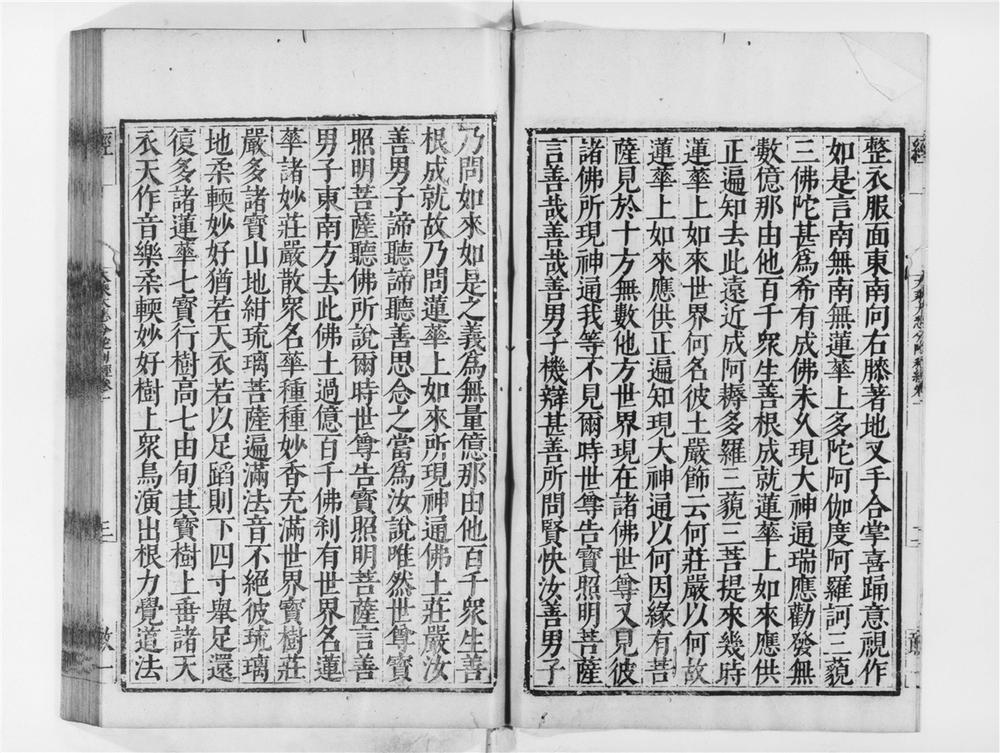 整衣服面東南向右膝著地叉手合掌喜踊意視作
如是言南無南無蓮華上多陀阿伽度阿羅訶三藐
三佛陀甚爲希有成佛未久現大神通瑞應勸發無
數億那由他百千衆生善根成就蓮華上如來應供
正遍知去此遠近成阿耨多羅三藐三菩提來幾時
蓮華上如來世界何名彼土嚴節云何莊嚴以何故
蓮華上如來應供正遍知現大神通以何因緣有菩
薩見於十方無數他方世界現在諸佛世尊又見彼
諸佛所現神通我等不見爾時世尊告寶照明菩薩
言善哉善哉善男子機辯甚善所問賢快汝善男子
乃問如來如是之義爲無量億那由他百千衆生善
根成就故乃問蓮華上如來所現神通佛土莊嚴汝
善男子諦聽諦聽善思念之當爲汝說唯然世尊寶
照明菩薩聽佛所說爾時世尊告寶照明菩薩言善
男子東南方去此佛土過億百千佛刹有世界名蓮
華諸妙莊嚴散衆名華種種妙香充滿世界寶樹莊
嚴多諸寶山地紺琉璃菩薩遍滿法音不絕彼琉璃
地柔輭妙好猶若天衣若以足蹈則下四寸舉足還
復多諸蓮華七寶行樹高七由旬其寶樹上垂諸天
衣天作音樂柔輭妙好樹上衆鳥演出根力覺道法
經
三